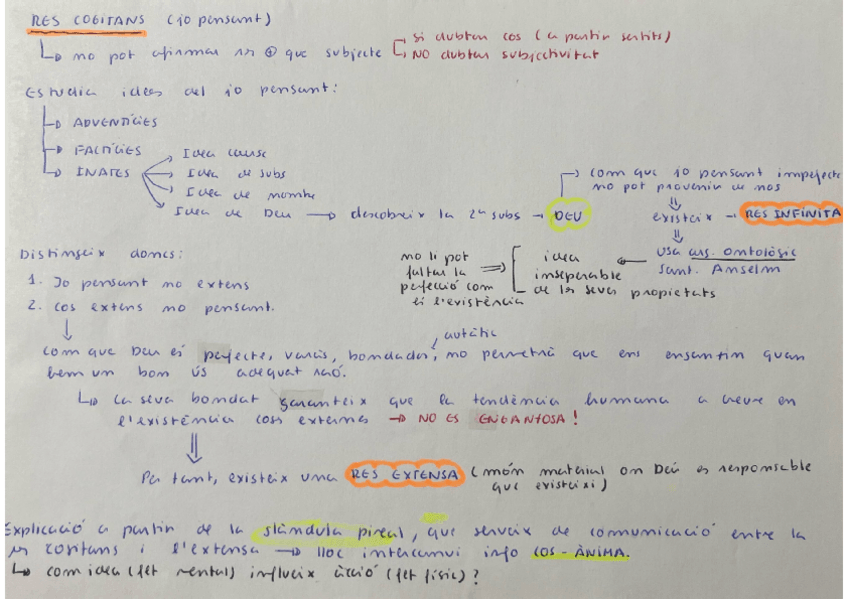 RES COGITANS (jo pensant)
↳ no pot afirmar res ⊕ que subjecte
si dubtar cos (a partir sentits)
NO dubtar subjectivitat
Estudia idees del jo pensant:
→ ADVENTÍCIES
→ FACTÍCIES
→ INATES
Idea causa
Idea de subs
Idea de nombre
Idea de Deu → descobreix la 2ª subs → DEU
com que jo pensant imperfecte
no pot provenir de nos
⇓
existeix → RES INFINITA
⇓
usa arg. ontològic
sant. Anselm
idea
inseparable
de les seves propietats
no li pot
faltar la
perfecció com
és l'existència
Distingeix doncs:
1. Jo pensant no extens
2. cos extens no pensant.
com que Deu és perfecte, veraç, bondadós, no permetrà que ens enganyin quan
autèntic
fem un bon ús adequat raó.
↳ La seva bondat garanteix que la tendència humana a creure en
l'existència cosos externes → NO ES ENGANYOSA!
⇓
Per tant, existeix una RES EXTENSA (món material on Deu és responsable
que existeixi)
Explicació a partir de la glàndula pineal, que serveix de comunicació entre la
res cogitans i l'extensa → lloc intercanvi info COS-ÀNIMA.
↳ com idea (fet mental) influeix acció (fet físic)?